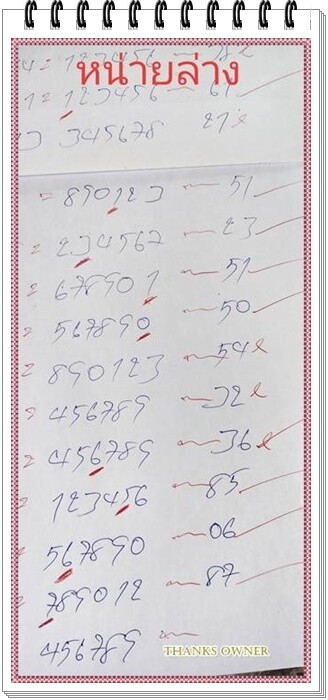 หน่ายล่าง
123456
123456 61
345678 21 x
= 890123 51
= 234567 23
= 678901 51
= 567890 50
= 890123 54 x
= 456789 32 x
= 456789 36 x
= 123456 85
= 567890 06
= 789012 87
456789
THANKS OWNER